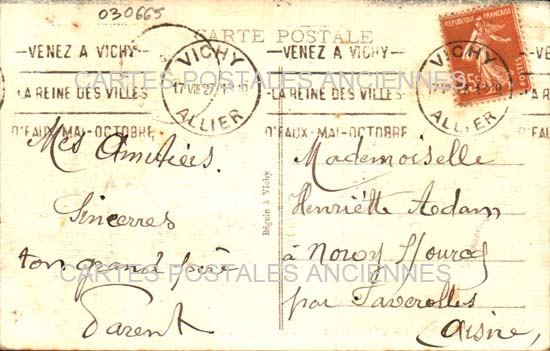 030665
CARTE POSTALE
VENEZ A VICHY
LA REINE DES VILLES
D'EAUX-MAI-OCTOBRE
VICHY
17 VIII 27
ALLIER
VENEZ A VICHY
LA REINE DES VILLES
D'EAUX-MAI-OCTOBRE
VICHY
ALLIER
REPUBLIQUE FRANÇAISE
CARTES POSTALES ANCIENNES
Mes Amitiés
Sincerres
ton grand père
Parent
Béguin à Vichy
Mademoiselle
Henriette Aadam
à
par Taverolles
Aisne,
CARTES POSTALES ANCIENNES